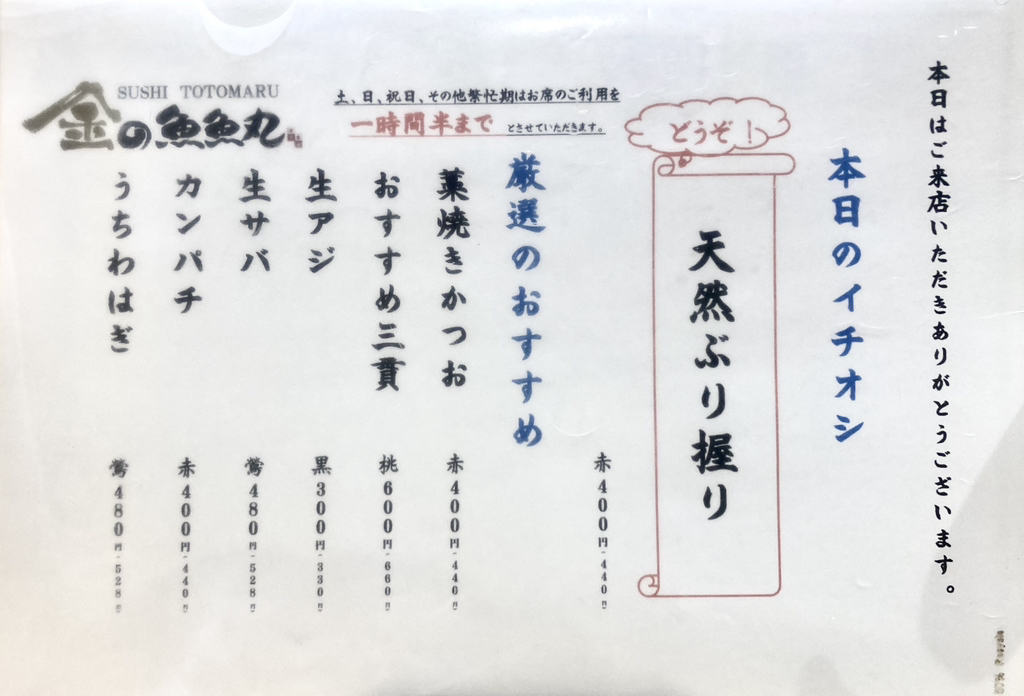 本日はご来店いただきありがとうございます。
本日のイチオシ
どうぞ！
天然ぶり握り
赤400円-440円
土、日、祝日、その他繁忙期はお席のご利用を
一時間半まで とさせていただきます。
厳選のおすすめ
藁焼きかつお 赤400円-440円
おすすめ三貫 桃600円-660円
生アジ 黒300円-330円
生サバ 鶯480円-528円
カンパチ 赤400円-440円
うちわはぎ 鶯480円-528円
SUSHI TOTOMARU
金の魚魚丸